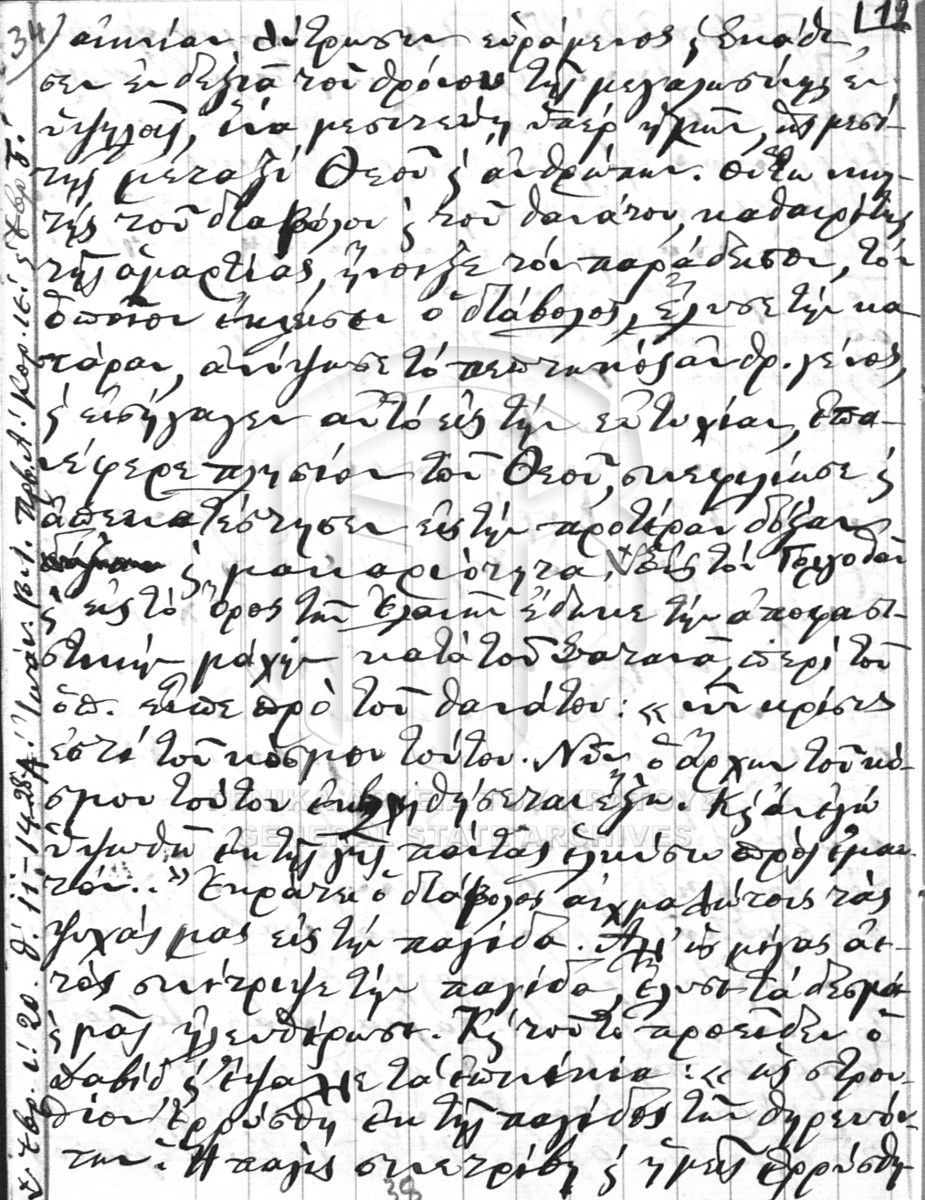 34) αἰωνίαν λύτρωσιν εὑράμενος, ἐκάθι-
12
σεν ἐν δεξιᾷ τοῦ θρόνου τῆς μεγαλωσύνης ἐν
ὑψηλοῖς, ἵνα μεσιτεύῃ ὑπὲρ ἡμῶν, ὡς μεσί-
της μεταξὺ Θεοῦ ϗ ἀνθρώπων. Οὕτω νικη-
τής τοῦ διαβόλου ϗ τοῦ θανάτου, καθαιρέτης
τῆς ἁμαρτίας, ἤνοιξε τόν παράδεισον, τόν
ὁποῖον ἐκλεισεν ὁ διάβολος, ἔλυσε τήν κα-
τάραν, ἀνύψωσε τό πεπτωκός ἀνθρ. γένος,
ϗ εἰσήγαγεν αὐτό εἰς τήν εὐτυχίαν, ἐπα-
νέφερε πλησίον τοῦ Θεοῦ, συνεφιλίωσε ϗ
ἀπεκατέστησεν εἰς τήν προτέραν δόξαν
ϗ μακαριότητα. Εἰς τόν Γολγοθᾶν
ϗ εἰς τό Ὄρος τῶν Ἐλαιῶν ἔδωκε τήν ἀποφασι-
στικήν μάχην κατά τοῦ Σατανᾶ, περί τοῦ
ὁπ. εἶπε πρὸ τοῦ θανάτου: « νῦν κρίσις
ἐστί τοῦ κόσμου τούτου. Νῦν ὁ ἄρχων τοῦ κό-
σμου τούτου ἐκβληθήσεται ἔξω. Κἀγώ ἐάν
ὑψωθῶ ἐκ τῆς γῆς πάντας ἑλκύσω πρός ἐμαυ-
τόν.." Ἐκράτει ὁ διάβολος αἰχμαλώτους τάς
ψυχάς μας εἰς τήν παγίδα. ὡς μέγας ἀε-
τός συνέτριψε τήν παγίδα, ἔλυσε τά δεσμά
ϗ μᾶς ἠλευθέρωσε. Κ τοῦτο προεῖδεν ὁ
Δαβίδ ϗ ἔψαλλε τά ἐπινίκια: « ὡς στρου-
θίον ἐρρύσθη ἐκ τῆς παγίδος τῶν θηρευόν-
των. Ἡ παγίς συνετρίβη ϗ ἡμεῖς ἐρρύσθη-
38